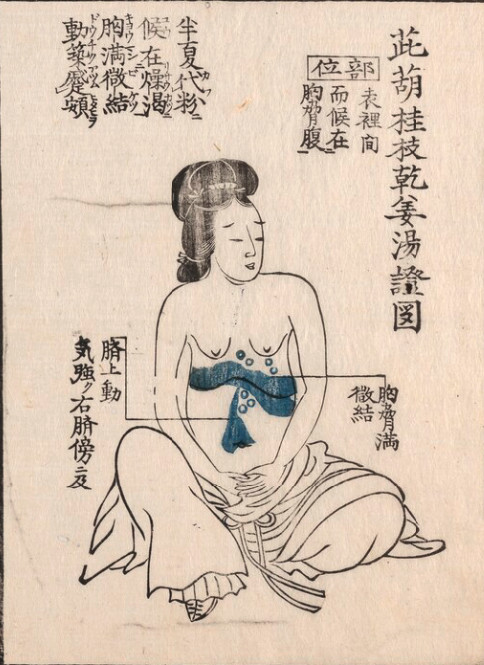 茈葫桂枝乾姜湯證図
部位
表裡間
而候在ニ
胸脅腹ニ
半夏代粉ニ
候在燥渇
胸満微結
動築
胸脅満
微結
臍上動
気強ク右臍傍ニ及